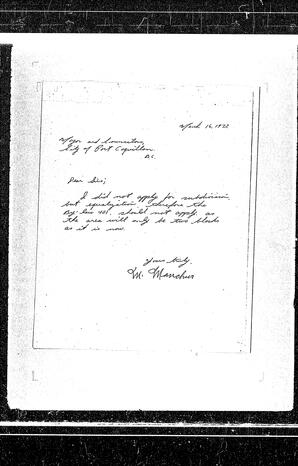 March 16, 1922
Mayor and Councillors,
City of Port Coquitlam
B.C.
Dear Sirs;
I did not apply for subdivision,
but equalization therefore the
By-law 401, should not apply, as
the area will only be two blocks
as it is now.
Yours truly,
M.